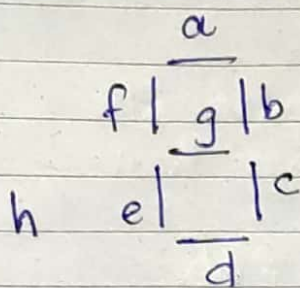 a
f g b
h e c
d